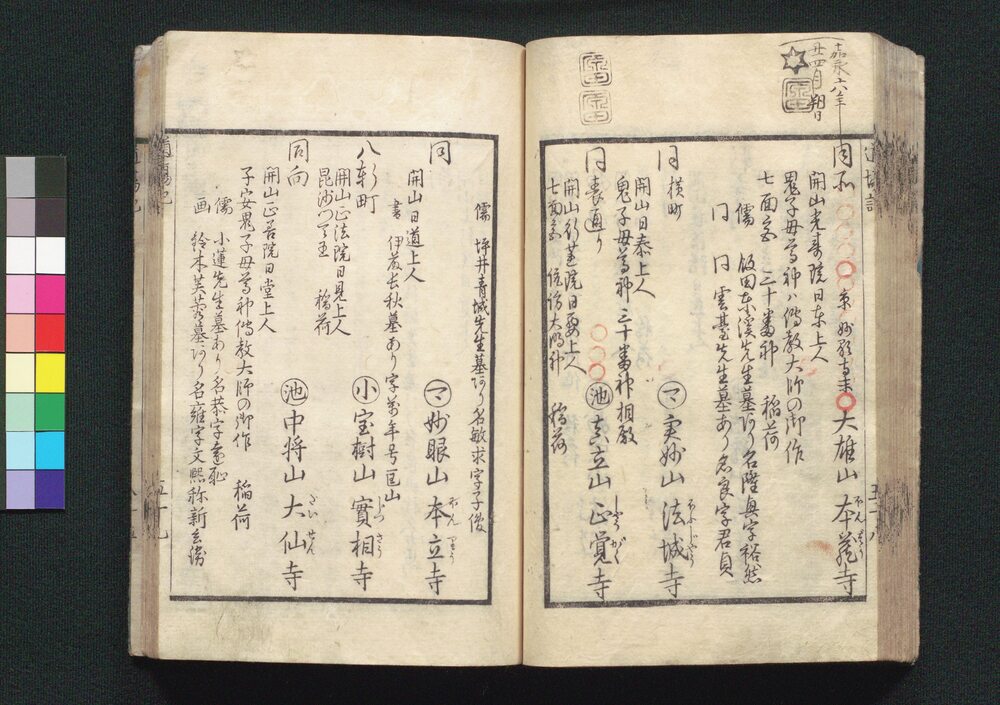 嘉永六年
廿四日
同所
大雄山
開山光寿院日東上人
鬼子母尊神ハ傳教大師の御作
七面宮 三十番神 稲荷
儒 飯田 先生墓あり名隆興字裕然
同 同 雲臺先生墓あり名良字君貞
同
横町
㋮実妙山法城寺
開山日泰上人
鬼子母尊神三十番神相殿
同
裏通り
㊥立山正覚寺
開山 院日要上人
七面宮 諏訪大明神 稲荷
儒 坪井青城先生墓あり名敏求字子俊
同
㋮妙眼山本立寺
開山日道上人
書 伊藤長秋墓あり字萬年号匡山
八軒町
小宝樹山實相寺
開山正法院日見上人
毘沙門天王 稲荷
同向
池中将山大仙寺
開山正善院日堂上人
子安鬼子母尊神傳教大師の御作 稲荷
儒 小蓮先生墓あり名恭字遠恥
画 鈴木芙蓉墓あり名雍字文熙称新兵衛